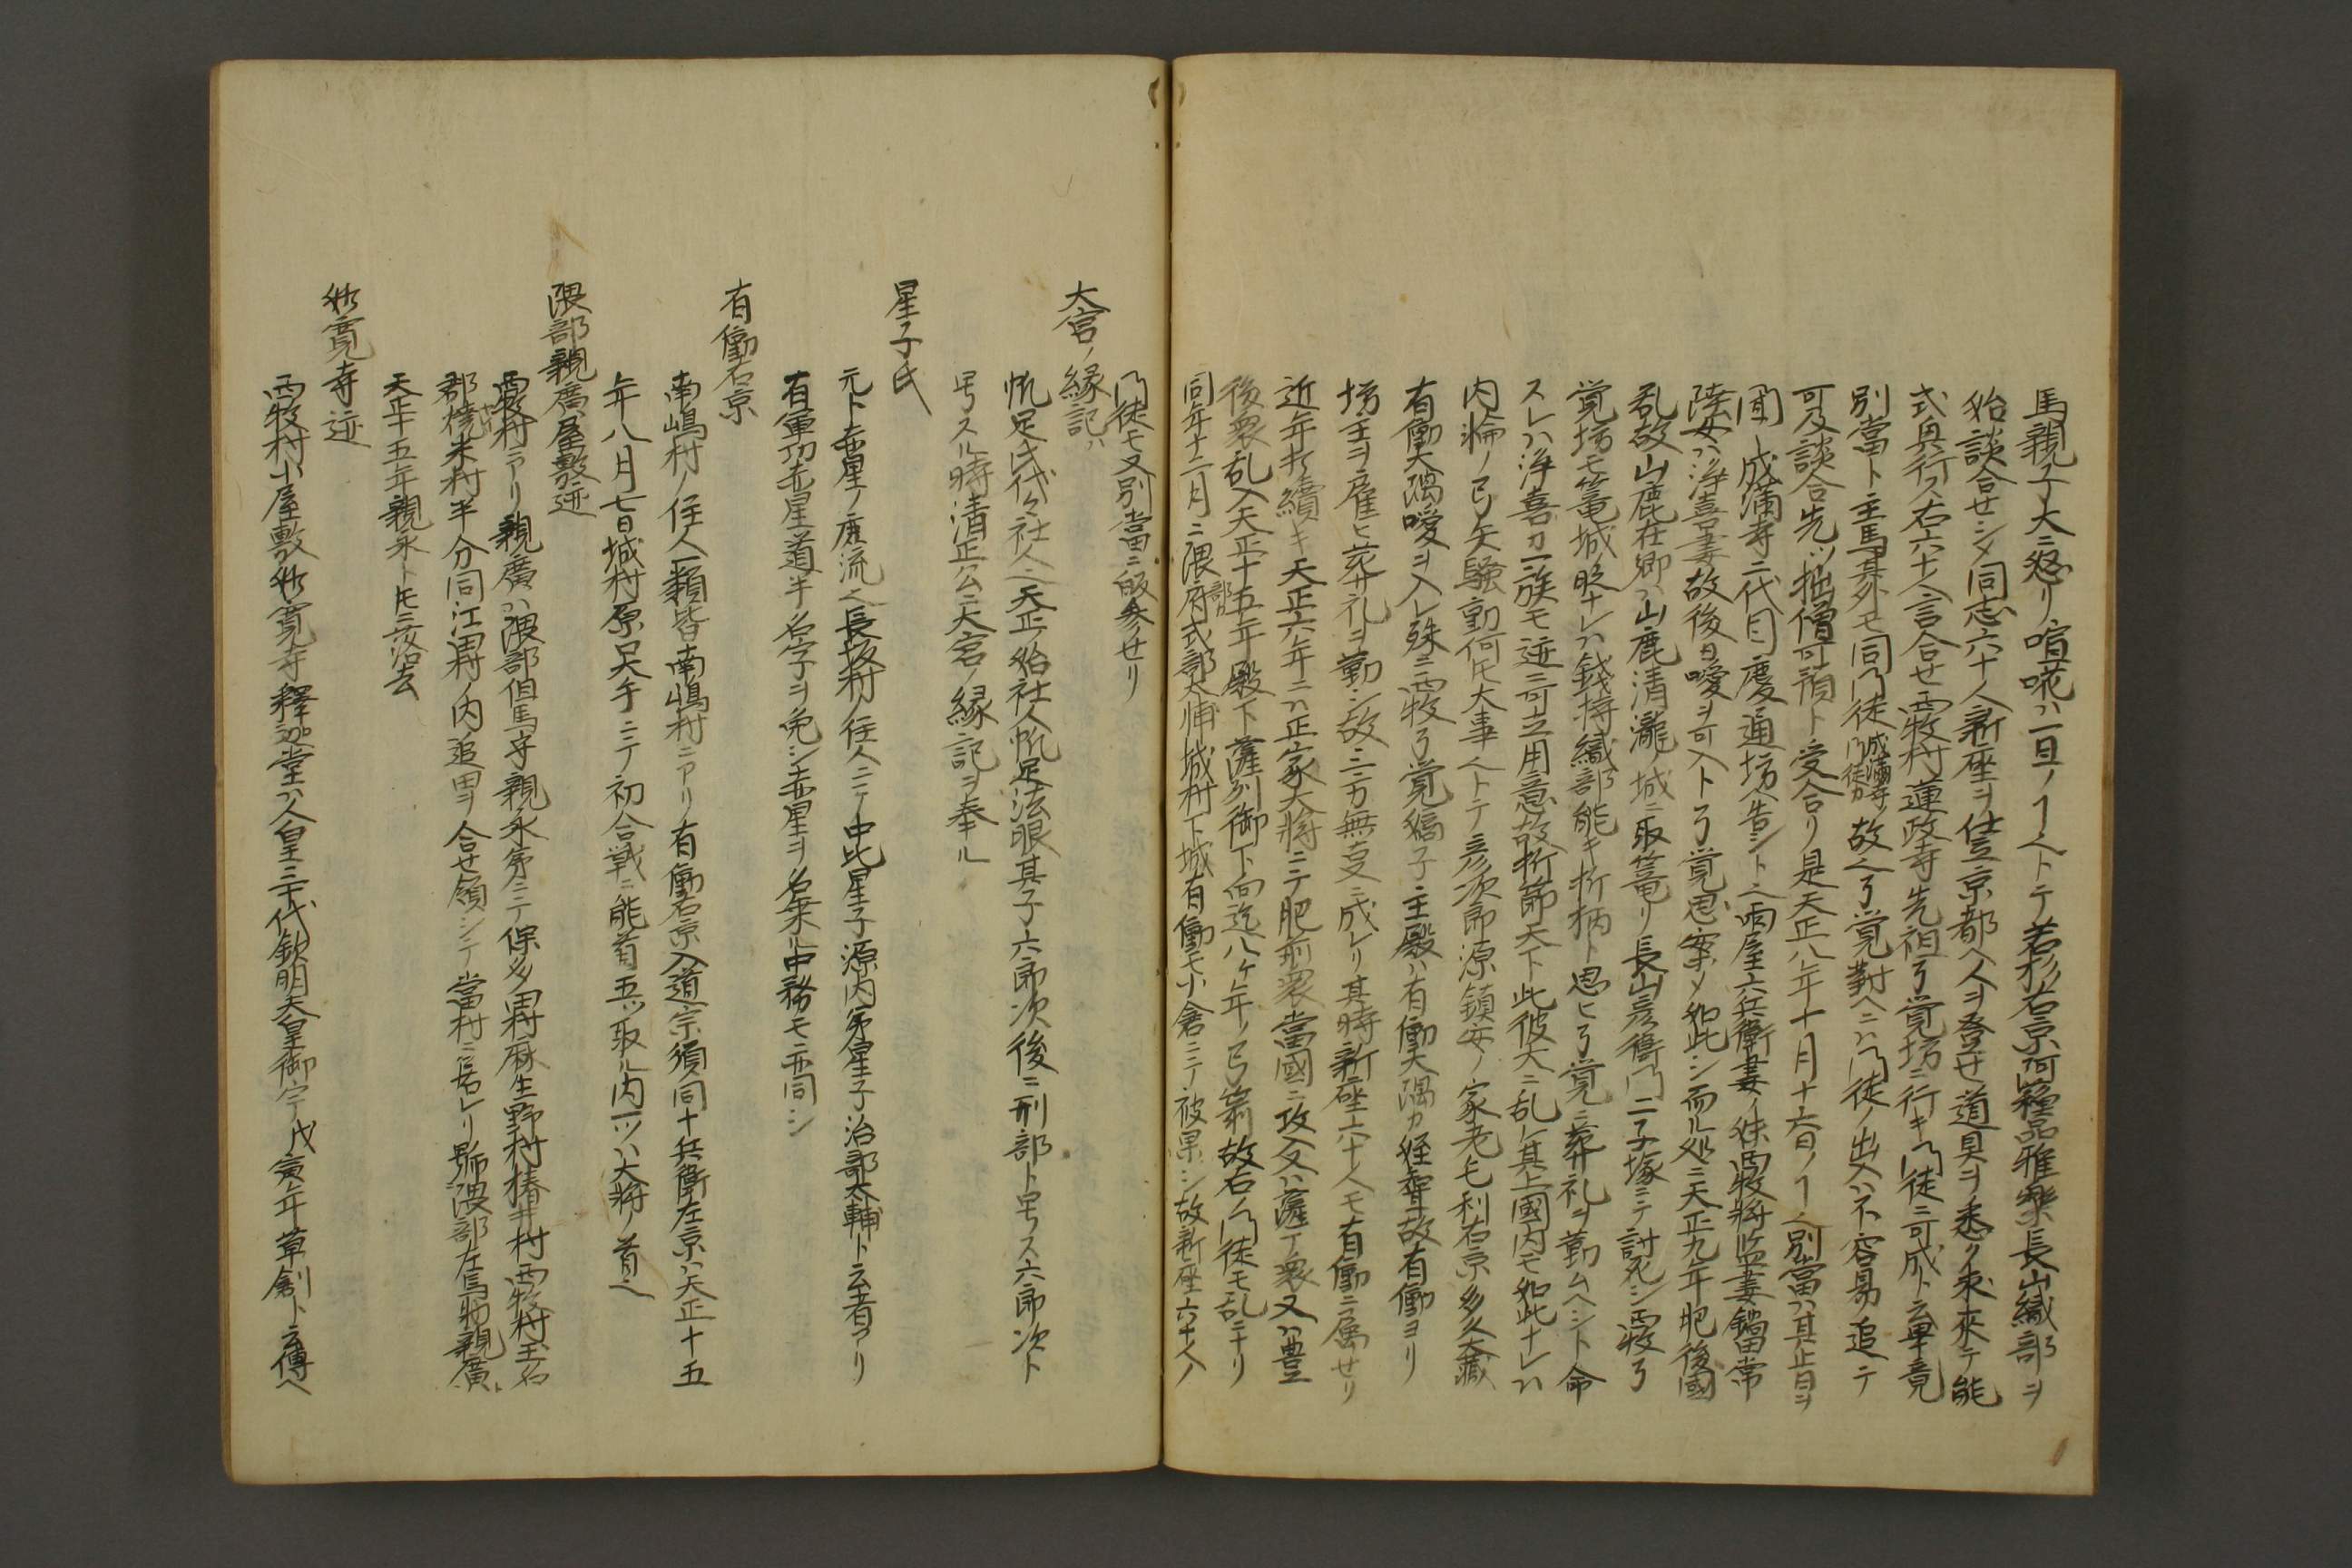 馬親子大ニ怒リ喧𠵅ハ一旦ノヿ也トテ若杉右京河籠品雅樂長山織部ヲ
始談合セシメ同志六十人新座ヲ仕立京都ヘ人ヲ登セ道具ヲ悉ク求来テ能
式具行ス右六十人言合セ西牧村蓮政寺先祖了覚坊ニ行キ門徒ニ可成ト云畢竟
別當ト主馬其外モ同門徒成滿寺ノ門徒カ故也了覚對ヘニハ門徒ノ出入ハ不容易追テ
可及談合先ツ拙僧可預ト受合リ是天正八年十月十六日ノヿ也別當ハ其止日ヲ
聞成滿寺二代目慶通坊ヘ告シト也雨屋六兵衛妻ノ妹西牧將監妻鐺常
陸女ハ浄喜妻故後日噯ヲ可入ト了覚思案メ如此シ而ル処ニ天正九年肥後國
乱故山鹿在郷ハ山鹿清瀧ノ城ニ取篭リ長山彦衛門二子塚ニテ討死シ西牧了
覚坊モ篭城皆ナレハ銭持織部能キ折柄ト思ヒ了覚ニ葬礼ヲ勤ムヘシト命
スレハ浄喜カ一族モ迹ニ可立用意故折節天下此彼大ニ乱レ其上國内モ如此ナレハ
内輪ノ弓矢騒動何氏大事也トテ彦次郎源鎮安ノ家老毛利右京多久大蔵
有働大隅噯ヲ入レ殊ニ西牧了覚嫡子主殿ハ有働大隅カ姪聟故有働ヨリ
坊主ヲ雇ヒ葬礼ヲ勤シ故ニ二方無支ニ成レリ其時新座六十人モ有働ニ属セリ
近年打續キ天正六年ニハ正家大將ニテ肥前衆當國ニ攻入又ハ薩丁衆又ハ豊
後衆乱入天正十五年殿下薩州御下向迄八ケ年ノ弓箭故右ノ門徒モ乱ニナリ
同年十二月ニ隈府部カ式部大輔城村下城有働モ小倉ニテ被果シ故新座六十人ノ
門徒モ又別當ニ皈参セリ
大宮ノ縁記ハ
帆足氏代々社人也天正ノ始社人帆足法眼其子六郎次後ニ刑部ト号ス六郎次ト
号スル時清正公ニ大宮ノ縁記ヲ奉ル
星子氏
元ト赤星ノ庶流也長坂村ノ住人ニテ中比星子源内弟星子治部大輔ト云者アリ
有軍功赤星道半名字ヲ免シ赤星ヲ名乗ル中務モ亦同シ
有働右京
南嶋村ノ住人一類皆南嶋村ニアリ有働右京入道宗須同十兵衛左京ハ天正十五
年八月七日城村原口大手ニテ初合戦ニ能首五ツ取ル内一ツハ大將ノ首也
隈部親廣屋敷迹
西牧村ニアリ親廣ハ隈部但馬守親永弟ニテ保多田村麻生野村椿井村西牧村玉名
郡焼米村半分同江田村ノ内追田ヲ合セ領シテ當村ニ居レリ號隈部左馬助親廣ト
天正十五年親永ト氏ニ落去
妙寛寺迹
西牧村小屋敷妙寛寺釋迦堂ハ人皇三十代欽明天皇御宇戊寅年草創ト云傳ヘ